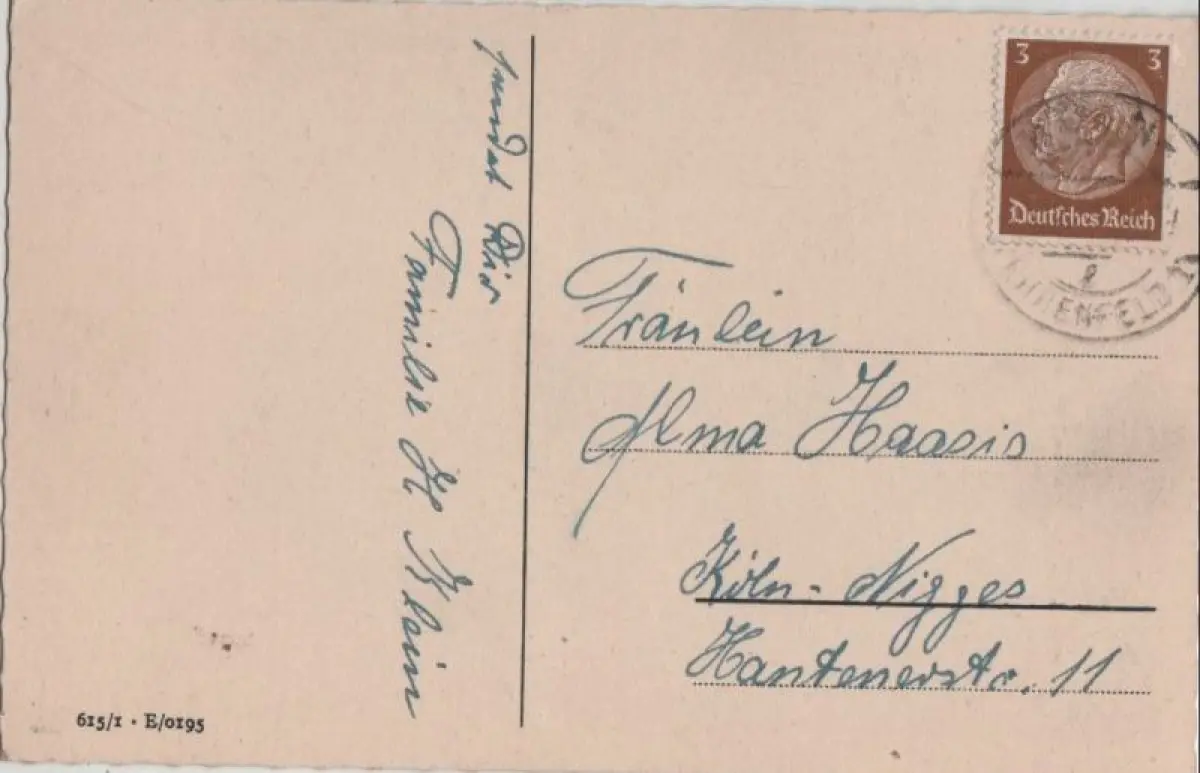 3 3
Deutsches Reich
sendet Dir
Familie H Klein
Fräulein
Alma Haasis
Köln-Nigges
Xantenerstr. 11
615/1 · E/0195